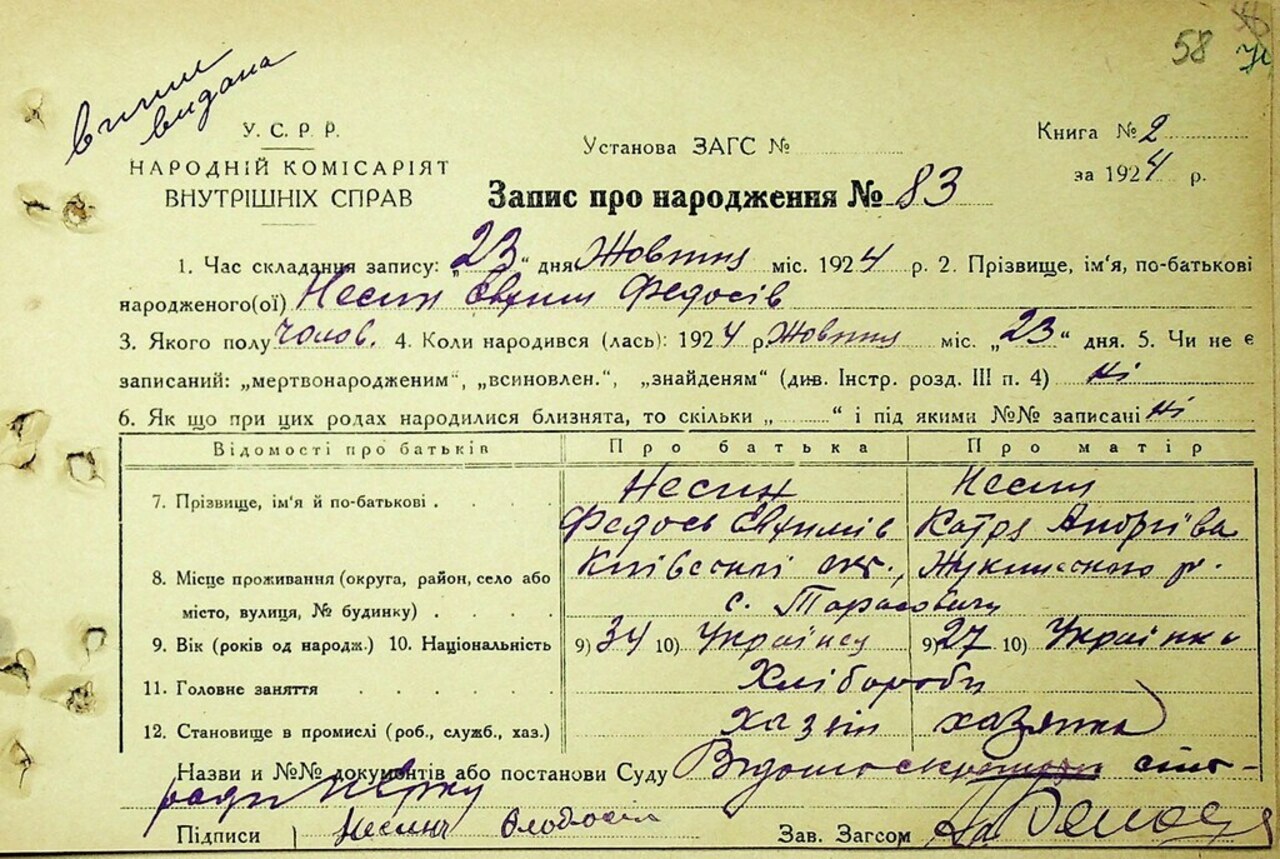 58
випис
видана
У. С. Р. Р.
НАРОДНІЙ КОМІСАРІЯТ
ВНУТРІШНІХ СПРАВ
Установа ЗАГС №
Книга № 2
за 1924 р.
Запис про народження № 83
1. Час складання запису: „23“ дня Жовтня міс. 1924 р. 2. Прізвище, ім'я, по-батькові
народженого(ої) Несин Євхим Федосів
3. Якого полу чолов. 4. Коли народився (лась): 1924 р. Жовтня міс. „23“ дня. 5. Чи не є
записаний: „мертвонародженим“, „всиновлен.“, „знайденям“ (див. Інстр. розд. III п. 4) ні
6. Як що при цих родах народилися близнята, то скільки „ “ і під якими №№ записані ні
Відомості про батьків Про батька Про матір
7. Прізвище, ім'я й по-батькові . . . . Несин Несин
Федось Євхимів Катря Андріїва
8. Місце проживання (округа, район, село або Київської окр., Жукинського р.
місто, вулиця, № будинку) . . . . с. Тарасовичи
9. Вік (років од народж.) 10. Національність 9) 34 10) Українец 9) 27 10) Українка
11. Головне заняття . . . . . . Хлібороби
12. Становище в промислі (роб., служб., хаз.) хазяін хазяйка
Назви и №№ документів або постанови Суду
Підписи Несин Зав. Загсом